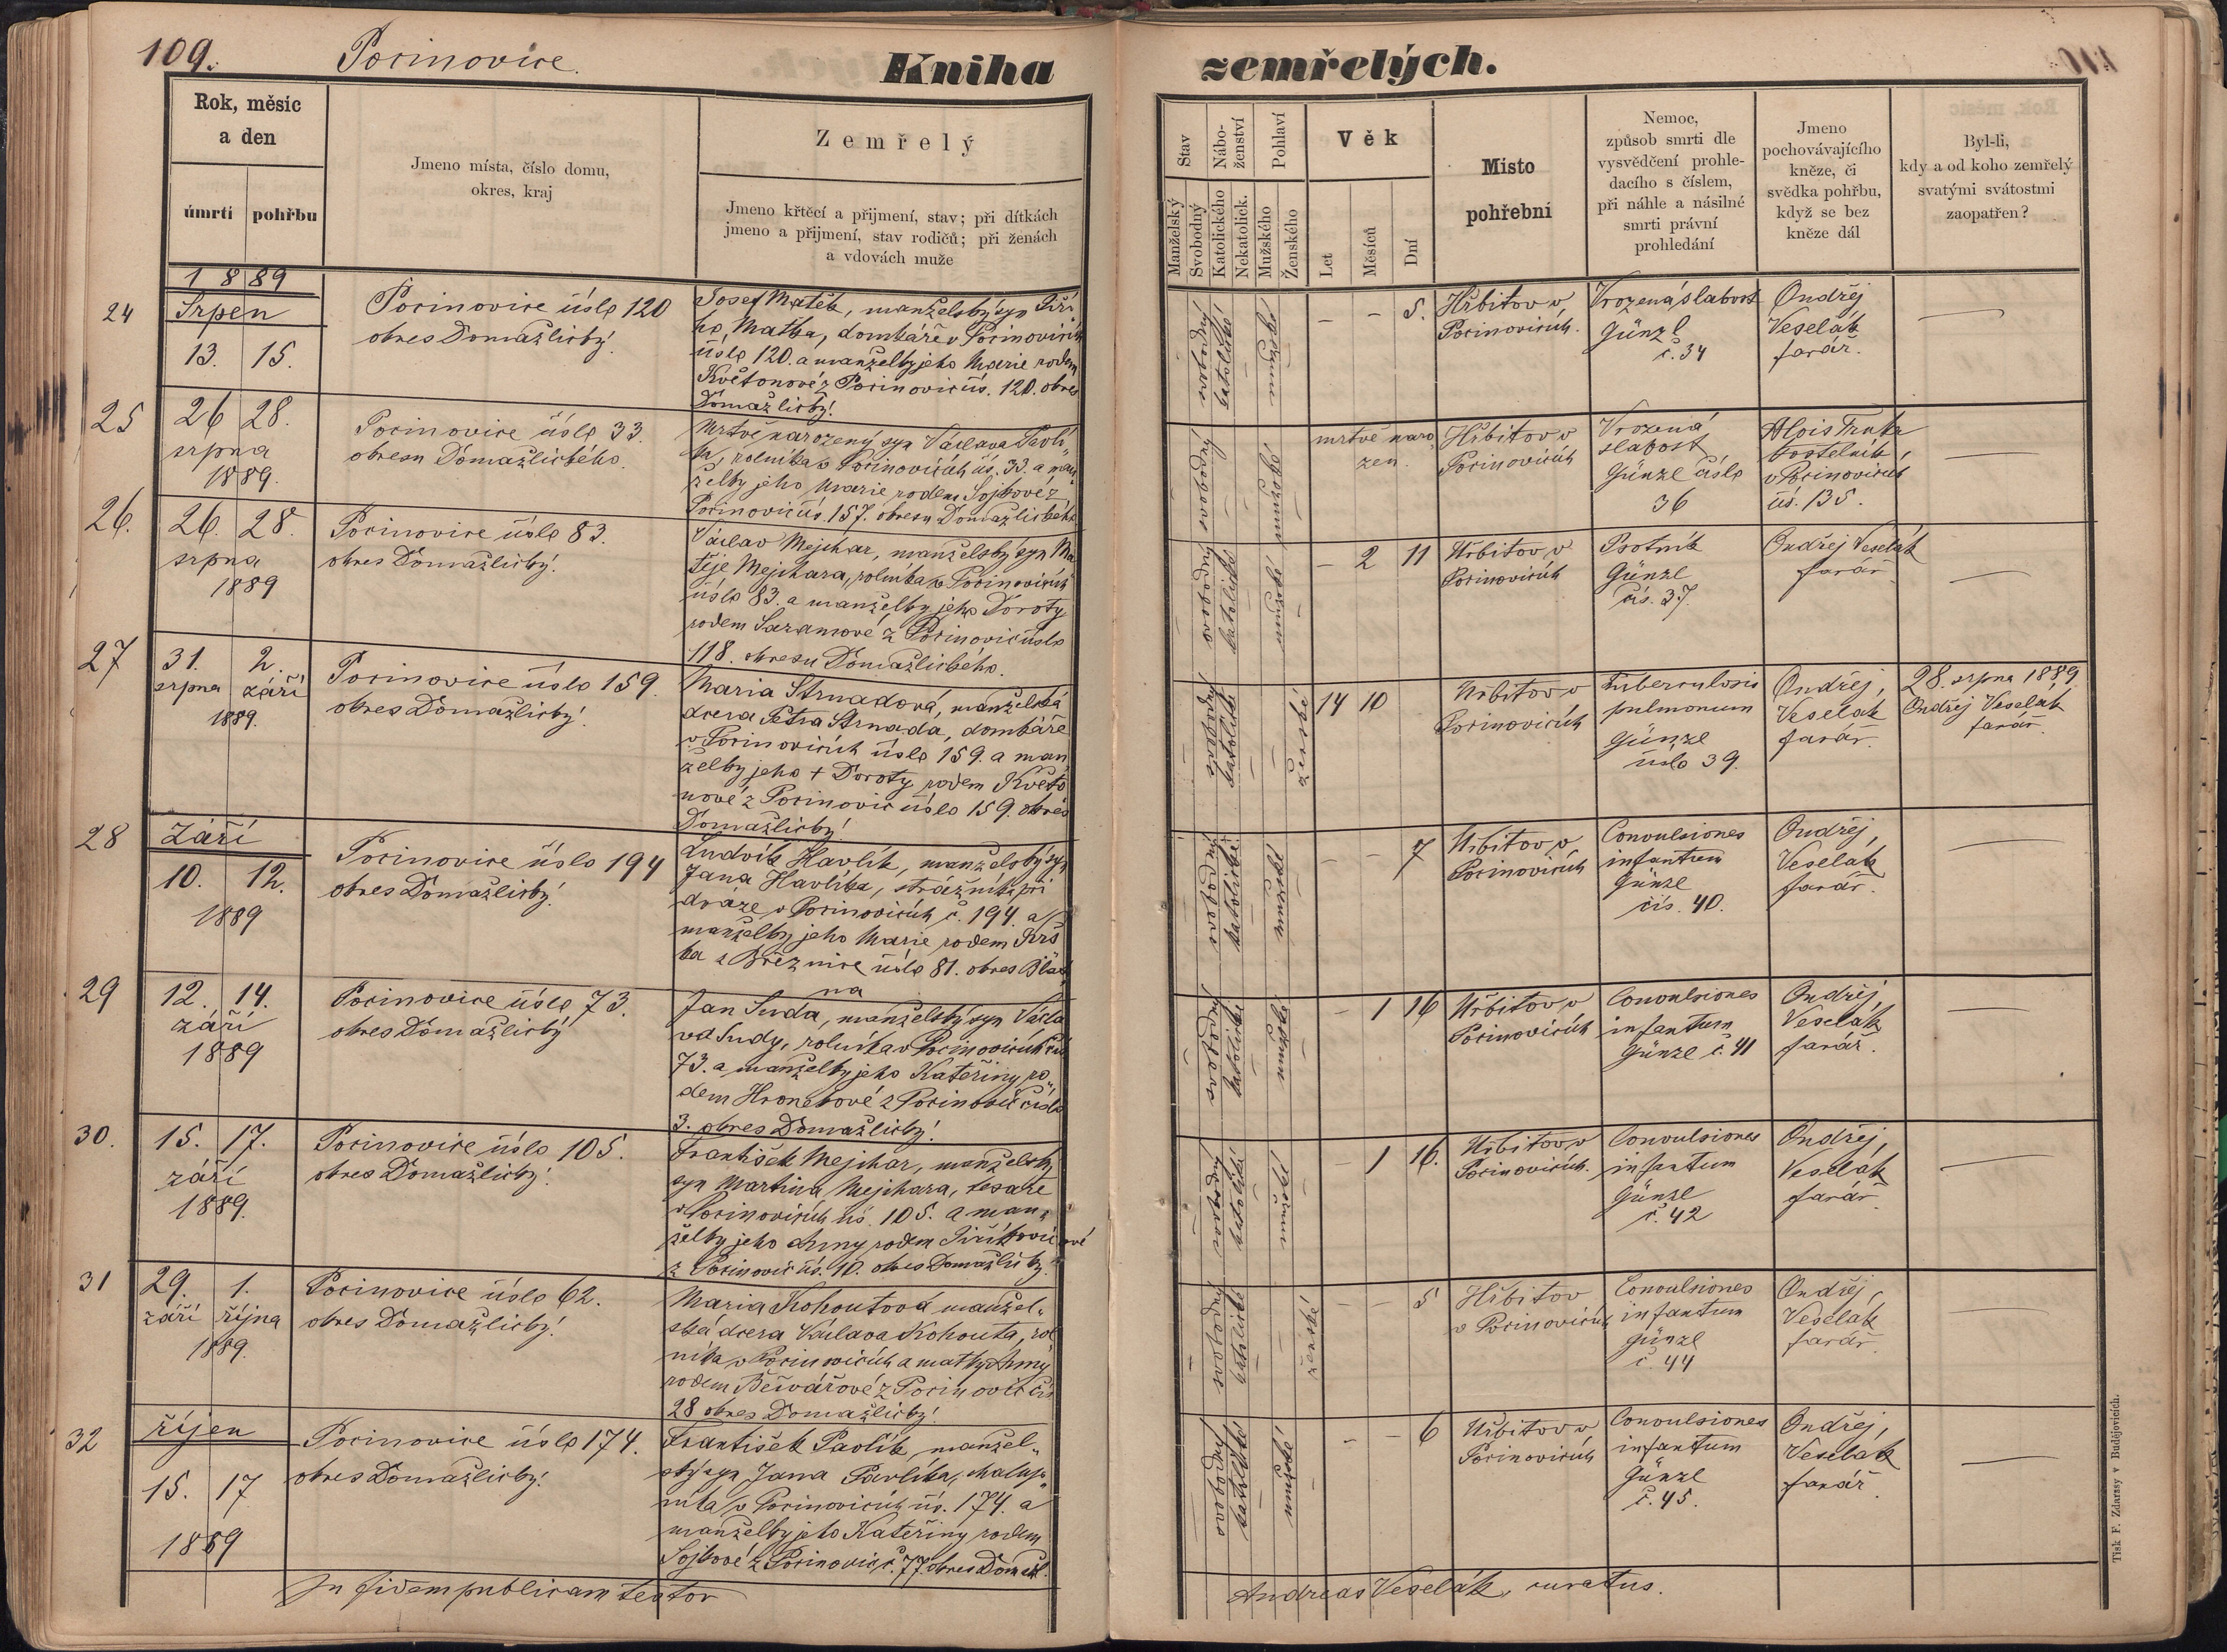 109.
Pocinovice.
Kniha
zemřelých.
Rok, měsíc
a den
úmrtí
pohřbu
Jmeno místa, číslo domu,
okres, kraj
Zemřelý
Jmeno křtěcí a přijmení, stav; při dítkách
jmeno a přijmení, stav rodičů; při ženách
a vdovách muže
Stav
Manželský
Svobodný
Nábo-
ženství
Katolického
Nekatolick.
Pohlaví
Mužského
Ženského
Věk
Let
Měsíců
Dní
Místo
pohřební
Nemoc,
způsob smrti dle
vysvědčení prohle-
dacího s číslem,
při náhle a násilné
smrti právní
prohledání
Jmeno
pochovávajícího
kněze, či
svědka pohřbu,
když se bez
kněze dál
Byl-li,
kdy a od koho zemřelý
svatými svátostmi
zaopatřen?
1889
24
Srpen
13. 15.
Pocinovice číslo 120
okres Domažlický.
Josef Matěk, manželský syn Jiří
ho Matka, domkáře v Pocinovicích
číslo 120. a manželky jeho Marie rodem
Květonové z Pocinovic čís. 120. okres
Domažlický.
svobodný
katolické
mužské
– – 5.
Hřbitov v
Pocinovicích.
Vrozená slabost
Günzl
č. 34
Ondřej
Veselák
farář.
25
26 28.
srpna
1889.
Pocinovice číslo 33.
okresu Domažlického.
Mrtvě narozený syn Václava
rolníka v Pocinovicích čís. 33. a man
želky jeho Marie rodem Sojkové z
Pocinovic čís. 157. okresu Domažlického
svobodný
mužské
mrtvě naro
zen.
Hřbitov v
Pocinovicích
Vrozená
slabost
Günzl číslo
36
Alois Trnka
kostelník
v Pocinovicích
čís. 135.
26.
26. 28.
srpna
1889
Pocinovice číslo 83.
okres Domažlický.
Václav Mejchar, manželský syn Ma
těje Mejchara, rolníka v Pocinovicích
číslo 83. a manželky jeho Doroty
rodem Sazamové z Pocinovic číslo
118. okresu Domažlického.
svobodný
katolické
mužské
– 2 11
Hřbitov v
Pocinovicích
Psotník
Günzl
čís. 37.
Ondřej Veselák
farář
27
31. 2.
srpna září
1889.
Pocinovice číslo 159.
okres Domažlický.
Maria Strnadová, manželská
dcera Petra Strnada, domkáře
v Pocinovicích číslo 159. a man
želky jeho + Doroty rodem Květo
nové z Pocinovic číslo 159. okres
Domažlický.
svobodný
katolické
ženské
14 10
Hřbitov v
Pocinovicích
Tuberculosis
pulmonum
Günzl
číslo 39.
Ondřej
Veselák
farář.
28. srpna 1889
Ondřej Veselák
farář.
28
Září
10. 12.
1889
Pocinovice číslo 194
okres Domažlický.
Ludvík Havlík, manželský syn
Jana Havlíka, strážníka při
dráze v Pocinovicích č. 194. a
manželky jeho Marie rodem Jirš
ka z Březnice číslo 81. okres Blat
na
svobodný
katolické
mužské
– – 7
Hřbitov v
Pocinovicích
Convulsiones
infantum
Günzl
čís. 40.
Ondřej
Veselák
farář.
29
12. 14.
září
1889
Pocinovice číslo 73.
okres Domažlický
Jan Suda, manželský syn Václa
va Sudy, rolníka v Pocinovicích čís.
73. a manželky jeho Kateřiny ro
dem Hronekové z Pocinovic číslo
3. okres Domažlický.
svobodný
katolické
mužské
– 1 16
Hřbitov v
Pocinovicích
Convulsiones
infantum
Günzl č. 41
Ondřej
Veselák
farář.
30.
15. 17.
září
1889.
Pocinovice číslo 105.
okres Domažlický.
František Mejchar, manželský
syn Martina Mejchara, tesaře
v Pocinovicích čís. 105. a man
želky jeho Anny rodem Jiříkovicové
z Pocinovic čís. 10. okres Domažlický.
svobodný
katolické
mužské
– 1 16.
Hřbitov v
Pocinovicích.
Convulsiones
infantum
Günzl
č. 42
Ondřej
Veselák
farář
31
29. 1.
září října
1889.
Pocinovice číslo 62.
okres Domažlický.
Maria Kohoutová manžel-
ská dcera Václava Kohouta, rol
níka v Pocinovicích a matky Anny
rodem Bečvářové z Pocinovic čís
28 okres Domažlický.
svobodný
katolické
ženské
– – 5
Hřbitov
v Pocinovicích
Convulsiones
infantum
Günzl
č. 44
Ondřej
Veselák
farář
32
říjen
15. 17
1889
Pocinovice číslo 174.
okres Domažlický.
František Pavlík, manžel-
ský syn Jana Pavlíka, chalup-
níka v Pocinovicích čís. 174. a
manželky jeho Kateřiny rodem
Sojkové z Pocinovic č. 77. okres Domažl.
svobodný
katolické
mužské
– – 6
Hřbitov v
Pocinovicích
Convulsiones
infantum
Günzl
č. 45.
Ondřej
Veselák
farář.
In fidem publicam testor
Andreas Veselák, curatus.
Tisk F. Zdarssy v Budějovicích.